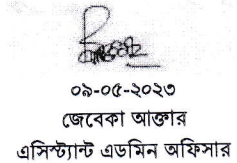 ০৯-০৫-২০২৩
জেবেকা আক্তার
এসিস্ট্যান্ট এডমিন অফিসার